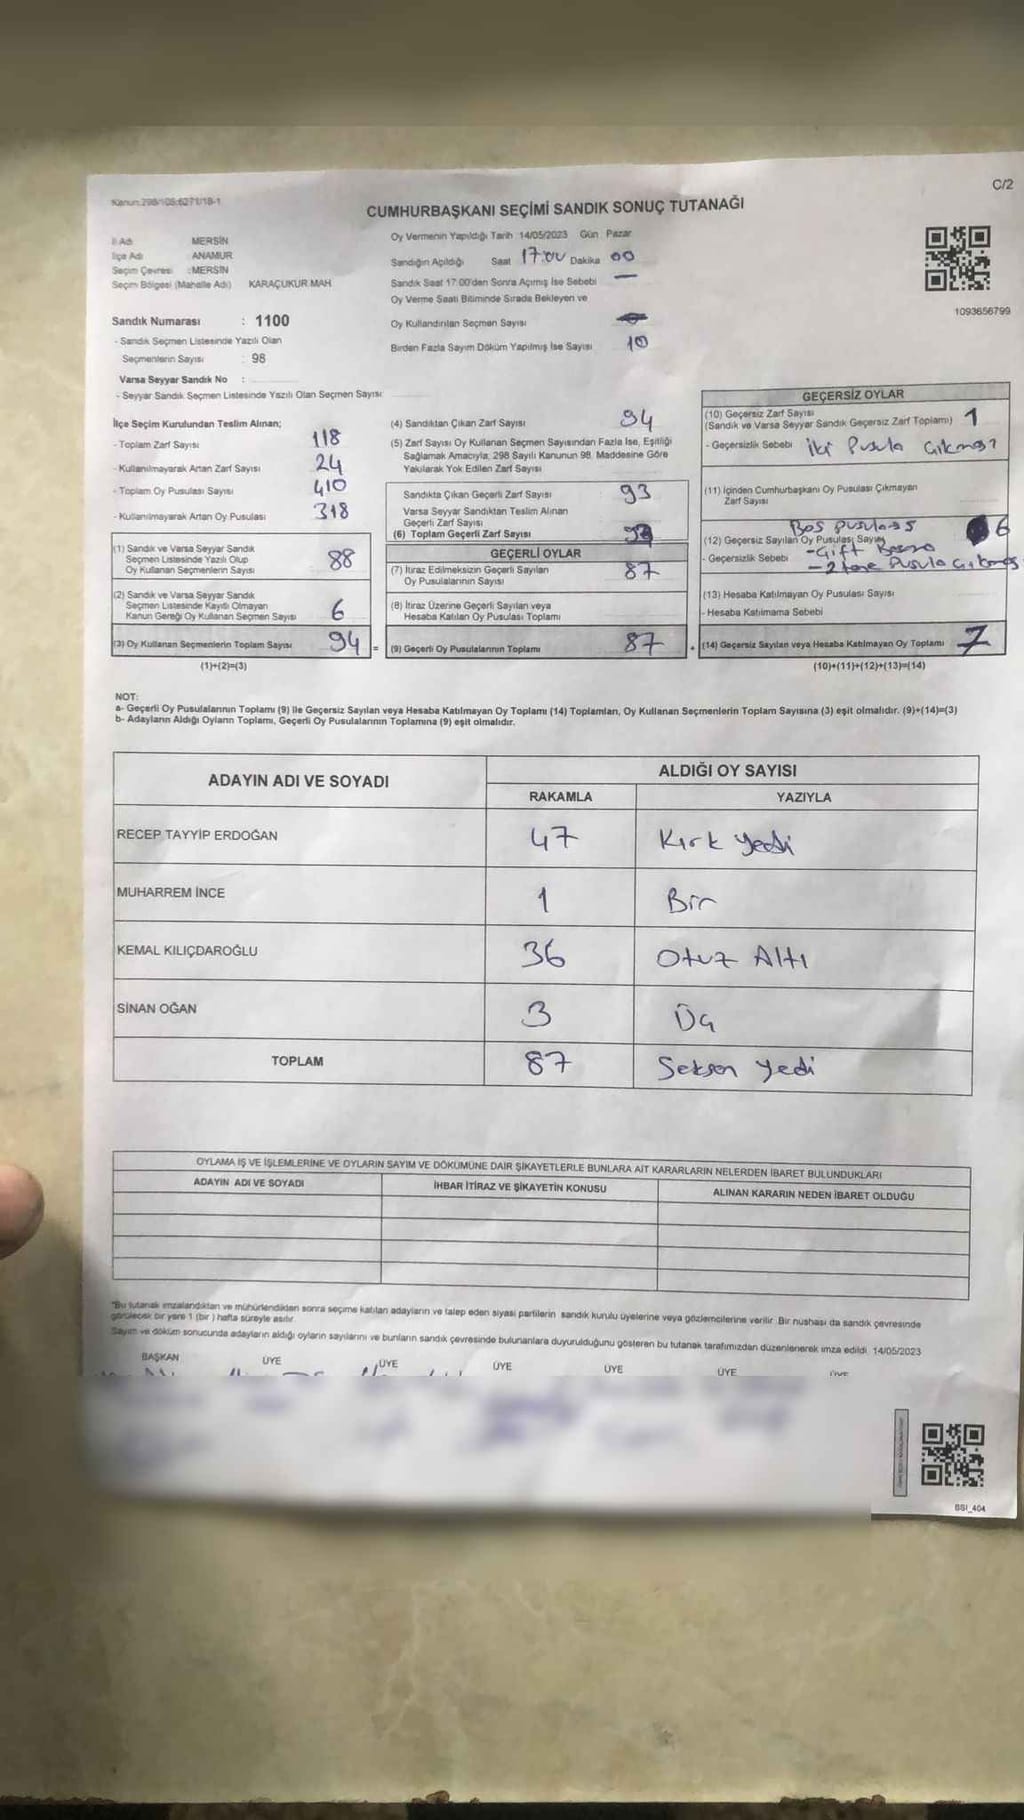 Kanun:298/105;6271/18-1
C/2
CUMHURBAŞKANI SEÇİMİ SANDIK SONUÇ TUTANAĞI
İl Adı MERSİN
İlçe Adı ANAMUR
Seçim Çevresi :MERSİN
Seçim Bölgesi (Mahalle Adı) KARAÇUKUR MAH
Sandık Numarası : 1100
- Sandık Seçmen Listesinde Yazılı Olan
Seçmenlerin Sayısı : 98
Varsa Seyyar Sandık No :
- Seyyar Sandık Seçmen Listesinde Yazılı Olan Seçmen Sayısı:
Oy Vermenin Yapıldığı Tarih 14/05/2023 Gün Pazar
Sandığın Açıldığı Saat 17:00 Dakika 00
Sandık Saat 17:00'den Sonra Açılmış İse Sebebi —
Oy Verme Saati Bitiminde Sırada Bekleyen ve
Oy Kullandırılan Seçmen Sayısı
Birden Fazla Sayım Döküm Yapılmış İse Sayısı 10
1093656799
İlçe Seçim Kurulundan Teslim Alınan;
- Toplam Zarf Sayısı 118
- Kullanılmayarak Artan Zarf Sayısı 24
- Toplam Oy Pusulası Sayısı 410
- Kullanılmayarak Artan Oy Pusulası 318
(1) Sandık ve Varsa Seyyar Sandık
Seçmen Listesinde Yazılı Olup
Oy Kullanan Seçmenlerin Sayısı 88
(2) Sandık ve Varsa Seyyar Sandık
Seçmen Listesinde Kayıtlı Olmayan
Kanun Gereği Oy Kullanan Seçmen Sayısı 6
(3) Oy Kullanan Seçmenlerin Toplam Sayısı 94 =
(1)+(2)=(3)
(4) Sandıktan Çıkan Zarf Sayısı 94
(5) Zarf Sayısı Oy Kullanan Seçmen Sayısından Fazla İse, Eşitliği
Sağlamak Amacıyla, 298 Sayılı Kanunun 98. Maddesine Göre
Yakılarak Yok Edilen Zarf Sayısı
Sandıkta Çıkan Geçerli Zarf Sayısı 93
Varsa Seyyar Sandıktan Teslim Alınan
Geçerli Zarf Sayısı
(6) Toplam Geçerli Zarf Sayısı 93
GEÇERLİ OYLAR
(7) İtiraz Edilmeksizin Geçerli Sayılan
Oy Pusulalarının Sayısı 87
(8) İtiraz Üzerine Geçerli Sayılan veya
Hesaba Katılan Oy Pusulası Toplamı
(9) Geçerli Oy Pusulalarının Toplamı 87 +
GEÇERSİZ OYLAR
(10) Geçersiz Zarf Sayısı 1
(Sandık ve Varsa Seyyar Sandık Geçersiz Zarf Toplamı)
- Geçersizlik Sebebi İki Pusula Çıkması
(11) İçinden Cumhurbaşkanı Oy Pusulası Çıkmayan
Zarf Sayısı
Boş pusulası
(12) Geçersiz Sayılan Oy Pusulası Sayısı 6
- Geçersizlik Sebebi - Çift
- 2 tane Pusula Çıkması
(13) Hesaba Katılmayan Oy Pusulası Sayısı
- Hesaba Katılmama Sebebi
(14) Geçersiz Sayılan veya Hesaba Katılmayan Oy Toplamı 7
(10)+(11)+(12)+(13)=(14)
NOT:
a- Geçerli Oy Pusulalarının Toplamı (9) ile Geçersiz Sayılan veya Hesaba Katılmayan Oy Toplamı (14) Toplamları, Oy Kullanan Seçmenlerin Toplam Sayısına (3) eşit olmalıdır. (9)+(14)=(3)
b- Adayların Aldığı Oyların Toplamı, Geçerli Oy Pusulalarının Toplamına (9) eşit olmalıdır.
ADAYIN ADI VE SOYADI ALDIĞI OY SAYISI
RAKAMLA YAZIYLA
RECEP TAYYİP ERDOĞAN 47 Kırk yedi
MUHARREM İNCE 1 Bir
KEMAL KILIÇDAROĞLU 36 Otuz Altı
SİNAN OĞAN 3 Üç
TOPLAM 87 Seksen yedi
OYLAMA İŞ VE İŞLEMLERİNE VE OYLARIN SAYIM VE DÖKÜMÜNE DAİR ŞİKAYETLERLE BUNLARA AİT KARARLARIN NELERDEN İBARET BULUNDUKLARI
ADAYIN ADI VE SOYADI İHBAR İTİRAZ VE ŞİKAYETİN KONUSU ALINAN KARARIN NEDEN İBARET OLDUĞU
*Bu tutanak imzalandıktan ve mühürlendikten sonra seçime katılan adayların ve talep eden siyasi partilerin sandık kurulu üyelerine veya gözlemcilerine verilir. Bir nushası da sandık çevresinde
görülecek bir yere 1 (bir ) hafta süreyle asılır.
Sayım ve döküm sonucunda adayların aldığı oyların sayılarını ve bunların sandık çevresinde bulunanlara duyurulduğunu gösteren bu tutanak tarafımızdan düzenlenerek imza edildi. 14/05/2023
BAŞKAN ÜYE ÜYE ÜYE ÜYE ÜYE ÜYE
BSI_404